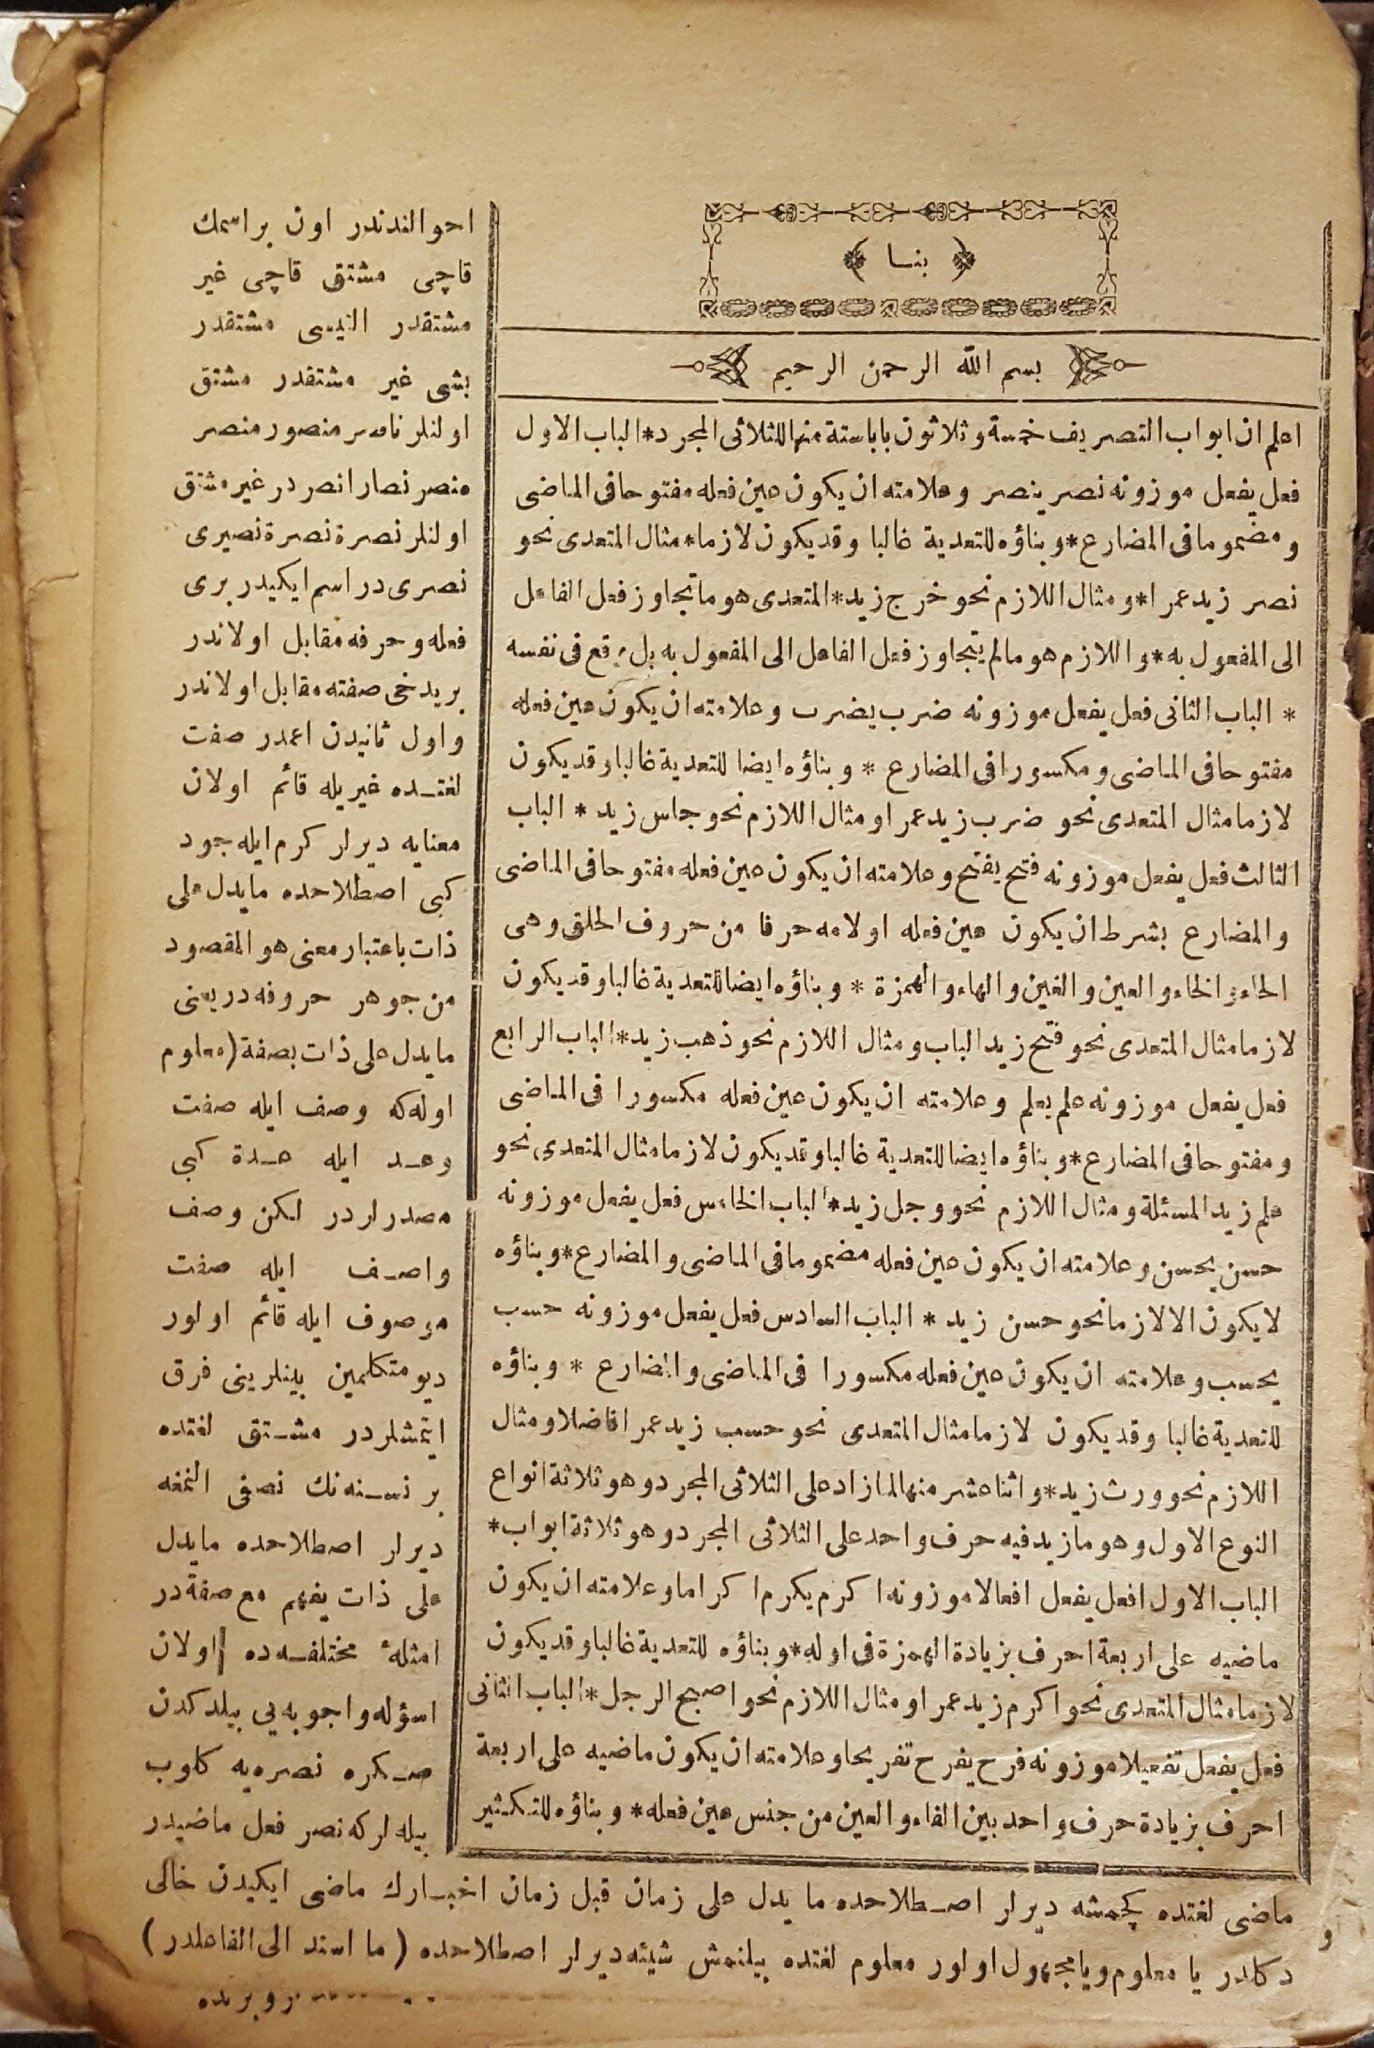 ﴿ بنا ﴾
بسم الله الرحمن الرحيم
اعلم ان ابواب التصريف خمسة وثلاثون بابا ستة منها للثلاثى المجرد * الباب الاول
فعل يفعل موزونه نصر ينصر وعلامته ان يكون عين فعله مفتوحا فى الماضى
ومضموما فى المضارع * وبناؤه للتعدية غالبا وقد يكون لازما * مثال المتعدى نحو
نصر زيد عمرا * ومثال اللازم نحو خرج زيد * المتعدى هو ما تجاوز فعل الفاعل
الى المفعول به * واللازم هو مالم يتجاوز فعل الفاعل الى المفعول به بل وقع فى نفسه
* الباب الثانى فعل يفعل موزونه ضرب يضرب وعلامته ان يكون عين فعله
مفتوحا فى الماضى ومكسورا فى المضارع * وبناؤه ايضا للتعدية غالبا وقد يكون
لازما مثال المتعدى نحو ضرب زيد عمرا ومثال اللازم نحو جلس زيد * الباب
الثالث فعل يفعل موزونه فتح يفتح وعلامته ان يكون عين فعله مفتوحا فى الماضى
والمضارع بشرط ان يكون عين فعله او لامه حرفا من حروف الحلق وهى
الحاء والخاء والعين والغين والهاء والهمزة * وبناؤه ايضا للتعدية غالبا وقد يكون
لازما مثال المتعدى نحو فتح زيد الباب ومثال اللازم نحو ذهب زيد * الباب الرابع
فعل يفعل موزونه علم يعلم وعلامته ان يكون عين فعله مكسورا فى الماضى
ومفتوحا فى المضارع * وبناؤه ايضا للتعدية غالبا وقد يكون لازما مثال المتعدى نحو
علم زيد المسئلة ومثال اللازم نحو وجل زيد * الباب الخامس فعل يفعل موزونه
حسن يحسن وعلامته ان يكون عين فعله مضموما فى الماضى والمضارع * وبناؤه
لا يكون الا لازما نحو حسن زيد * الباب السادس فعل يفعل موزونه حسب
يحسب وعلامته ان يكون عين فعله مكسورا فى الماضى والمضارع * وبناؤه
للتعدية غالبا وقد يكون لازما مثال المتعدى نحو حسب زيد عمرا فاضلا ومثال
اللازم نحو ورث زيد * واثنا عشر منها لما زاد على الثلاثى المجرد وهو ثلاثة انواع
النوع الاول وهو ما زيد فيه حرف واحد على الثلاثى المجرد وهو ثلاثة ابواب *
الباب الاول افعل يفعل افعالا موزونه اكرم يكرم اكراما وعلامته ان يكون
ماضيه على اربعة احرف بزيادة الهمزة فى اوله * وبناؤه للتعدية غالبا وقد يكون
لازما مثال المتعدى نحو اكرم زيد عمرا ومثال اللازم نحو اصبح الرجل * الباب الثانى
فعل يفعل تفعيلا موزونه فرح يفرح تفريحا وعلامته ان يكون ماضيه على اربعة
احرف بزيادة حرف واحد بين الفاء والعين من جنس عين فعله * وبناؤه للتكثير
احوالندندر اون بر اسمك
قاچى مشتق قاچى غير
مشتقدر التيسى مشتقدر
بشى غير مشتقدر مشتق
اولنلر ناصر منصور منصر
منصر نصار انصر در غير مشتق
اولنلر نصرة نصرة نصيرى
نصرى در اسم ايكيدر برى
فعله وحرفه مقابل اولاندر
بريدخى صفته مقابل اولاندر
واول ثانيدن اعمدر صفت
لغتده غيريله قائم اولان
معنايه ديرلر كرم ايله جود
كبى اصطلاحده مايدل على
ذات باعتبار معنى هو المقصود
من جوهر حروفه در يعنى
مايدل على ذات بصفة (معلوم
اوله كه وصف ايله صفت
وعد ايله عدة كبى
مصدرلردر لكن وصف
واصف ايله صفت
موصوف ايله قائم اولور
ديو متكلمين بينلرينى فرق
ايتمشلردر مشتق لغتده
بر نسنه نك نصفى النمغه
ديرلر اصطلاحده مايدل
على ذات يفهم مع صفة در
امثلۀ مختلفه ده اولان
اسؤله واجوبه يى بيلدكدن
صكره نصره يه كلوب
بيله لركه نصر فعل ماضيدر
ماضى لغتده كچمشه ديرلر اصطلاحده ما يدل على زمان قبل زمان اخبارك ماضى ايكيدن خالى
دكلدر يا معلوم ويا مجهول اولور معلوم لغتده بيلنمش شيئه ديرلر اصطلاحده (ما اسند الى الفاعلدر)